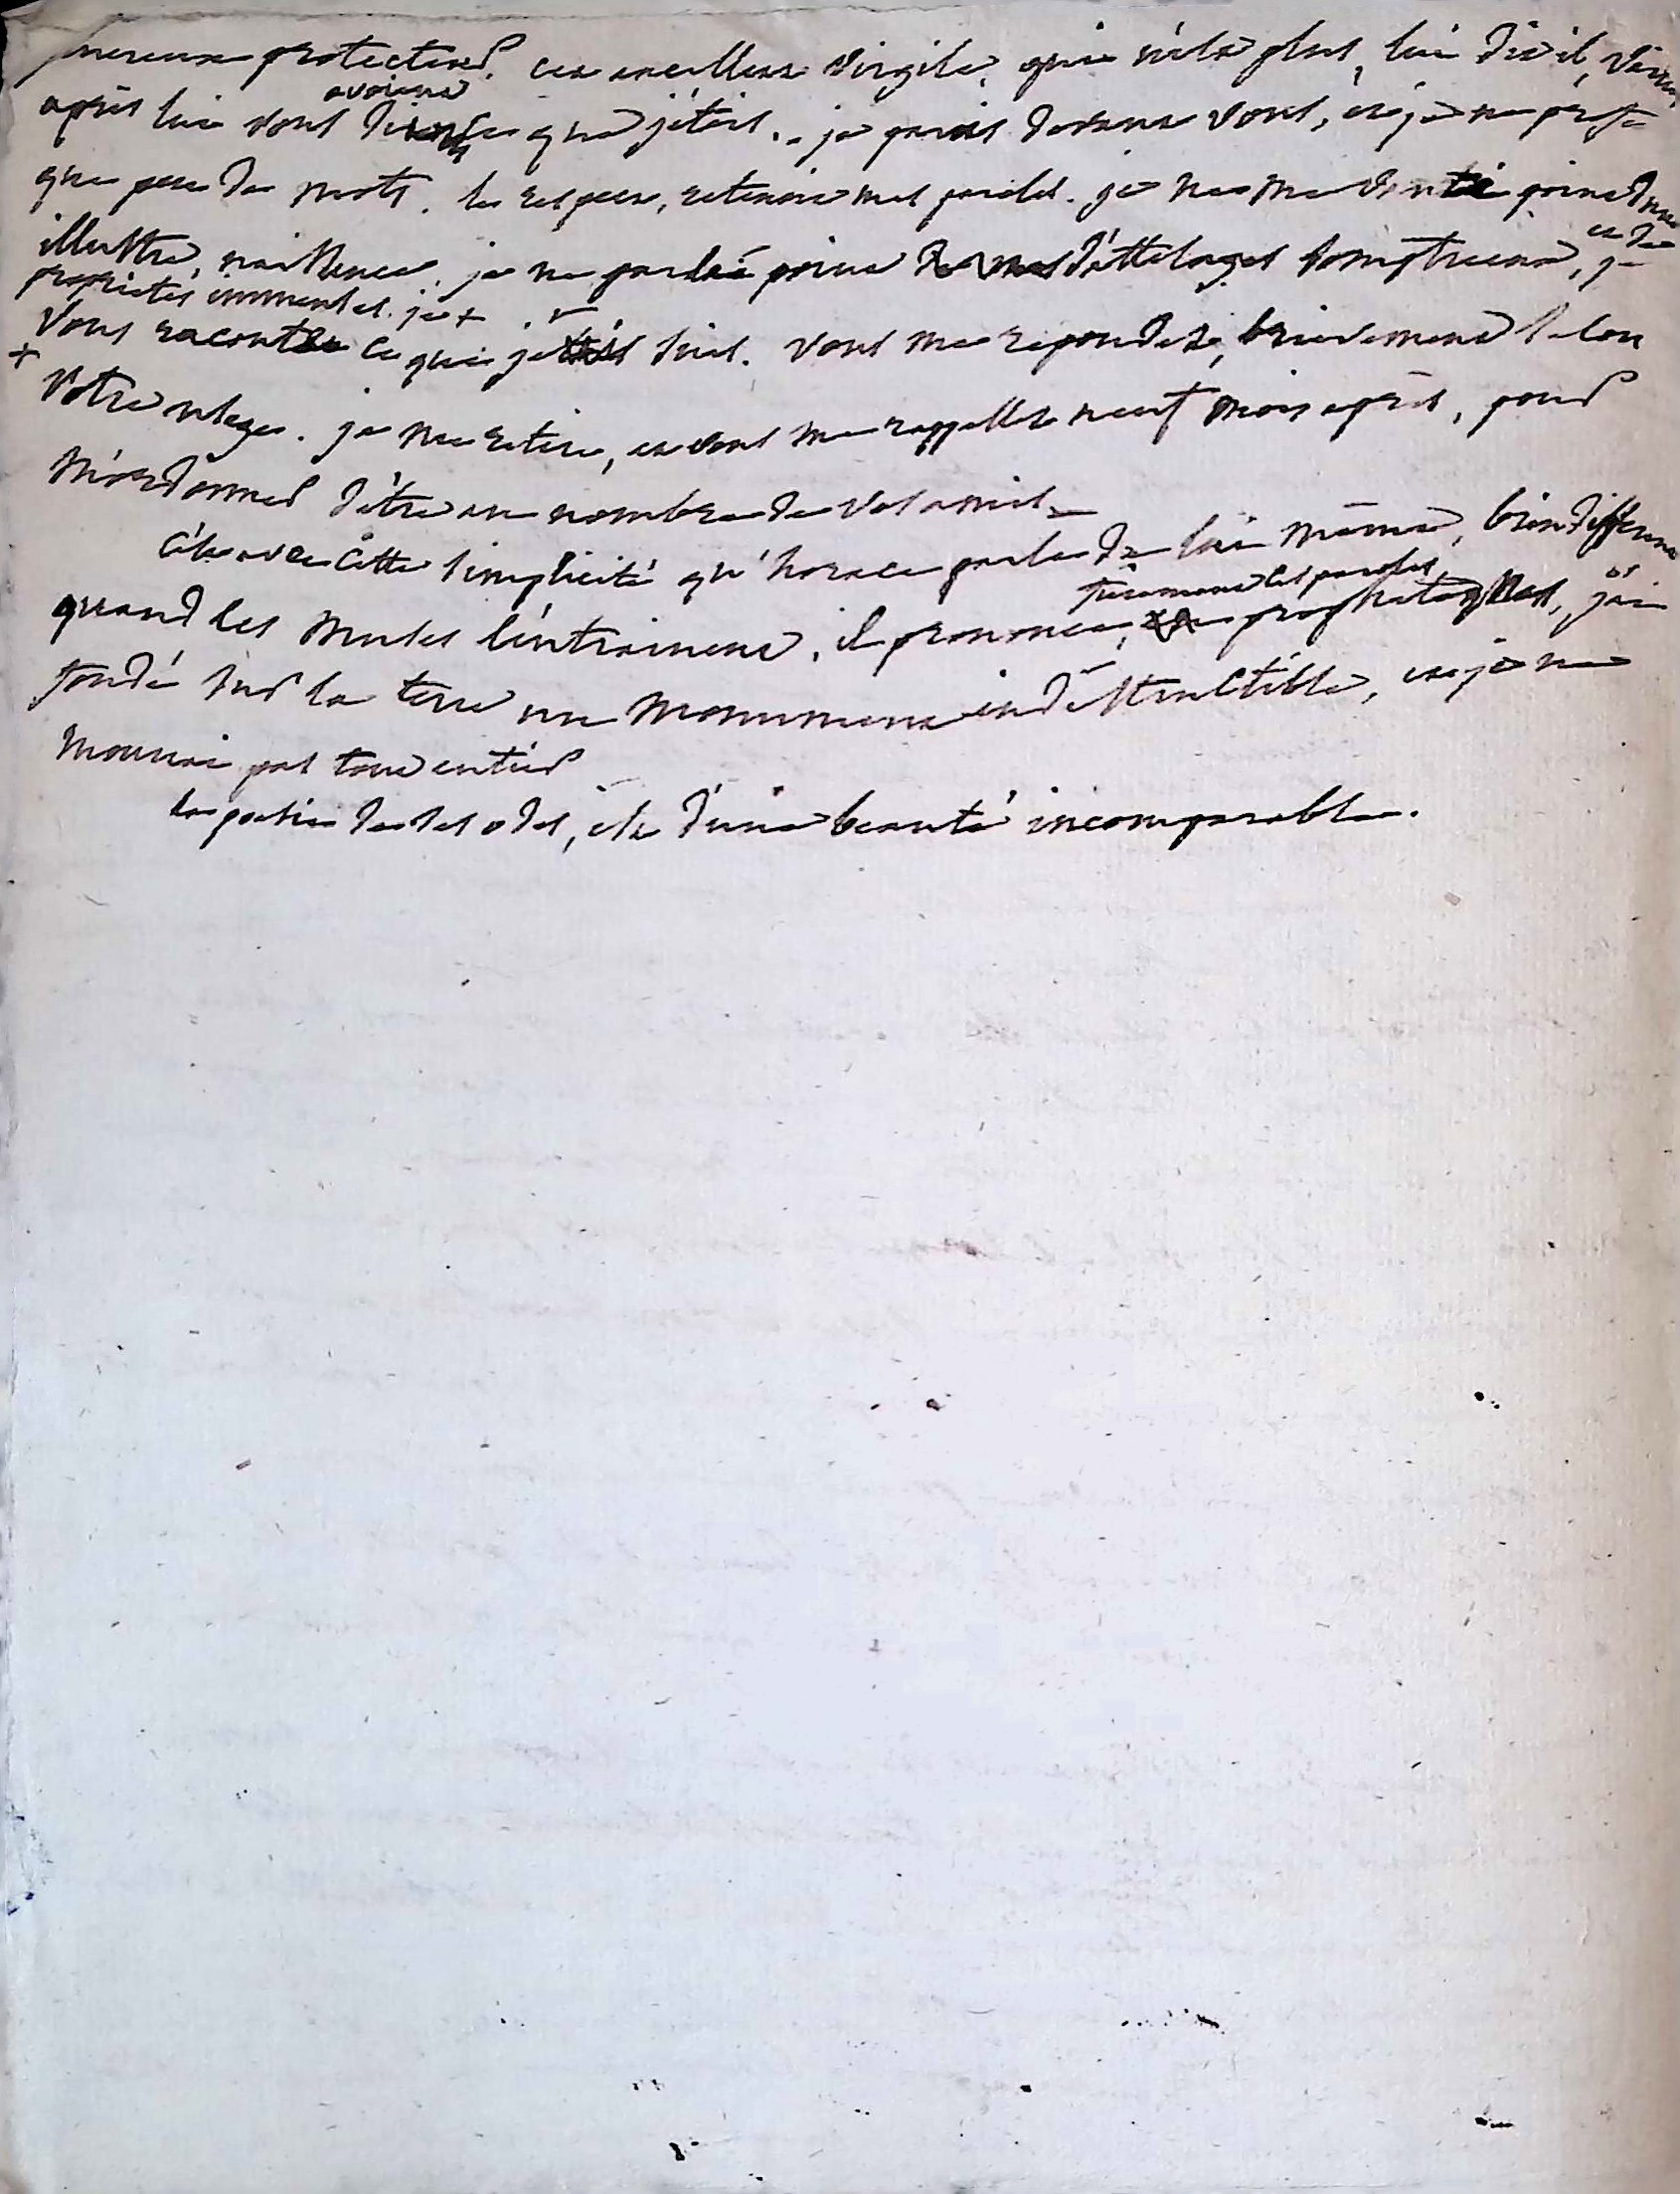 protecteur. cet excellent virgile, qui n'est plus, lui dit il, varius
avoient
après lui vous que j'étois.. je parus devant vous, et je ne
que peu de mots. le respect, retenoit mes paroles. je ne me vantai point d'une
et de
illustre naissance. je ne parlai point d'attelages somptueux,
propriétés immenses. je +
+ vous ce que je suis. vous me répondites, brievement selon
votre usage. je me retire, et vous me rappellés neuf mois après, pour
m'ordonner d'être au nombre de vos amis.
c'est avec cette simplicité qu'horace parle de lui même, bien différent
fierement ces paroles
quand les muses l'entrainent, il prononce, prophetiques, j'ai
fondé sur la terre un monument indestructible, et je ne
mourrai pas tout entier
la poësie de ses odes, est d'une beauté incomparable.